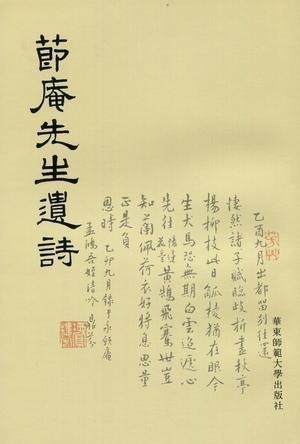 節庵先生遺詩
乙酉九月出都留別往還
悽然諸子賦臨歧折盡秋亭
楊柳枝此日觚棱猶在眼今
生犬馬恐無期白雲迢遞心
先往黃鵠飛騫世豈
知蘭佩荷衣好將息思量
正是負
恩時 乙卯九月錄于
孟鴻吾姪請吟 鼎芬
華東師範大學出版社